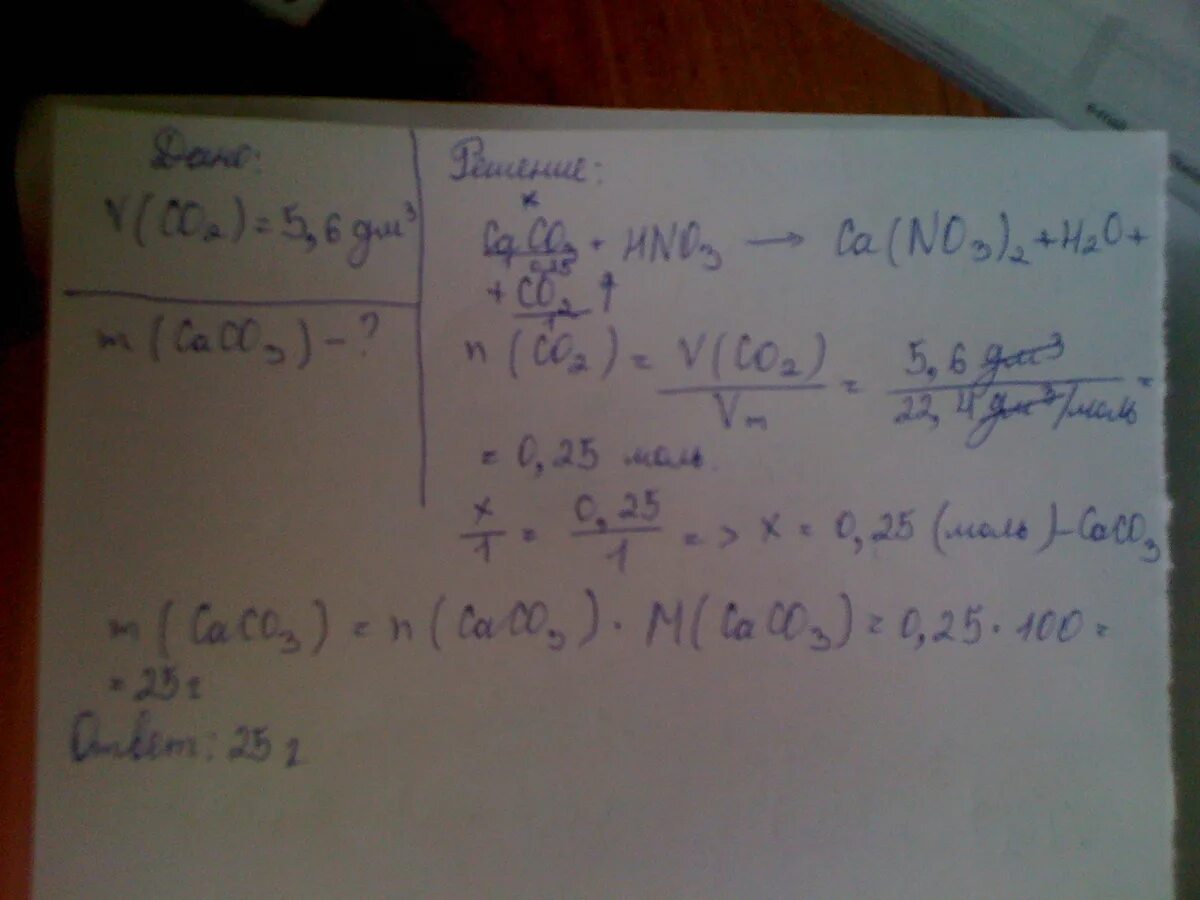 Дано:
V(CO₂) = 5,6 дм³
m(CaCO₃) - ?
Решение:
x
CaCO₃ + HNO₃ → Ca(NO₃)₂ + H₂O +
1
0,25
+ CO₂ ↑
1
n(CO₂) = V(CO₂) / Vm = 5,6 дм³ / 22,4 дм³/моль =
= 0,25 моль.
x/1 = 0,25/1 => x = 0,25 (моль) - CaCO₃
m(CaCO₃) = n(CaCO₃) · M(CaCO₃) = 0,25 · 100 =
= 25 г
Ответ: 25 г